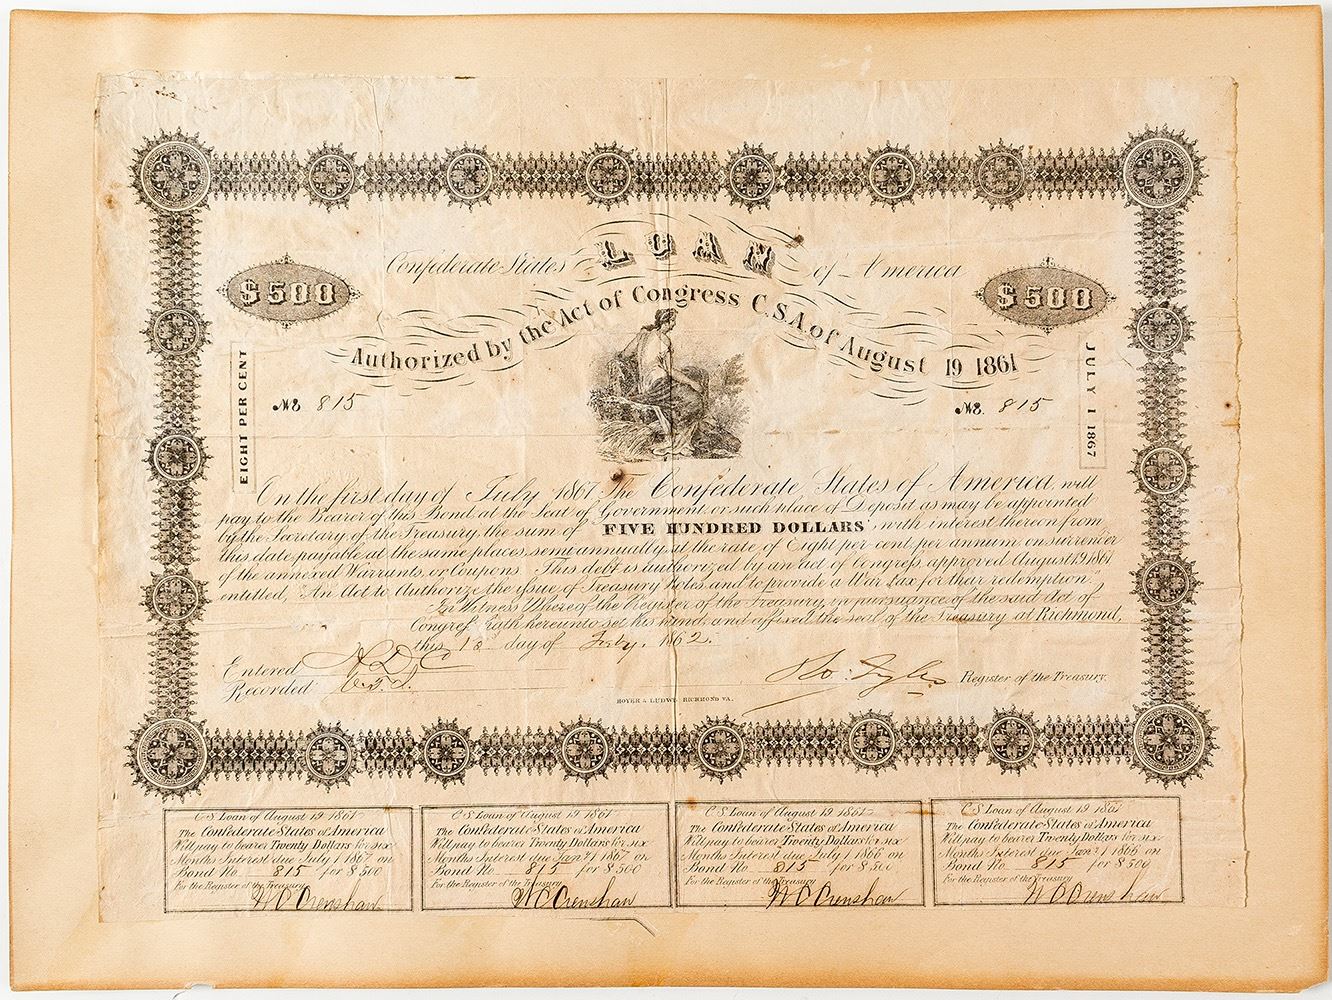 Confederate States LOAN of America
$500
$500
Authorized by the Act of Congress C.S.A of August 19 1861
EIGHT PER CENT
JULY 1 1867
No 815
No. 815
On the first day of July 1867 The Confederate States of America will
pay to the Bearer of this Bond, at the Seat of Government, or such place of Deposit as may be appointed
by the Secretary of the Treasury, the sum of FIVE HUNDRED DOLLARS, with interest thereon from
this date payable at the same places, semi annually at the rate of Eight per cent per annum on surrender
of the annexed Warrants, or Coupons. This debt is authorized by an act of Congress, approved August 19 1861
entitled, "An Act to Authorize the issue of Treasury Notes, and to provide a War Tax for their redemption"
In Witness Whereof the Register of the Treasury, in pursuance of the said Act of
Congress, hath hereunto set his hand, and affixed the seal of the Treasury at Richmond,
this day of July, 1862.
Entered
Recorded
Ro: Tyler Register of the Treasury.
HOYER & LUDWIG RICHMOND VA.
C.S. Loan of August 19 1861
The Confederate States of America
Will pay to bearer Twenty Dollars for six
Months Interest due July 1 1867 on
Bond No 815 for $500
For the Register of the Treasury
W C Crenshaw
C.S. Loan of August 19 1861
The Confederate States of America
Will pay to bearer Twenty Dollars for six
Months Interest due Jany 1 1867 on
Bond No 815 for $500
For the Register of the Treasury
W C Crenshaw
C.S. Loan of August 19 1861
The Confederate States of America
Will pay to bearer Twenty Dollars for six
Months Interest due July 1 1866 on
Bond No 815 for $500
For the Register of the Treasury
W C Crenshaw
C.S. Loan of August 19 1861
The Confederate States of America
Will pay to bearer Twenty Dollars for six
Months Interest due Jany 1 1866 on
Bond No 815 for $500
For the Register of the Treasury
W C Crenshaw